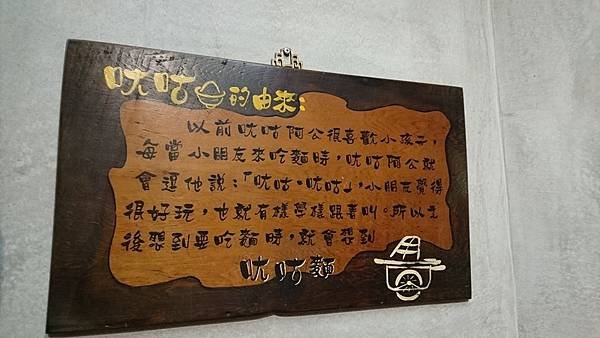 咣咕的由來：
以前咣咕阿公很喜歡小孩子，
每當小朋友來吃麵時，咣咕阿公就
會逗他說：「咣咕、咣咕」，小朋友覺得
很好玩，也就有樣學樣跟著叫。所以之
後想到要吃麵時，就會想到
咣咕麵